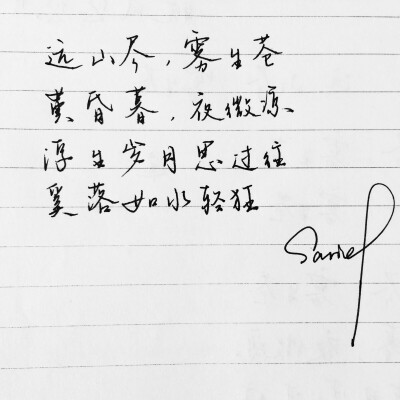 远山尽，雾生苍
黄昏暮，夜微凉
浮生岁月思过往
奚落如水轻狂
Sariel